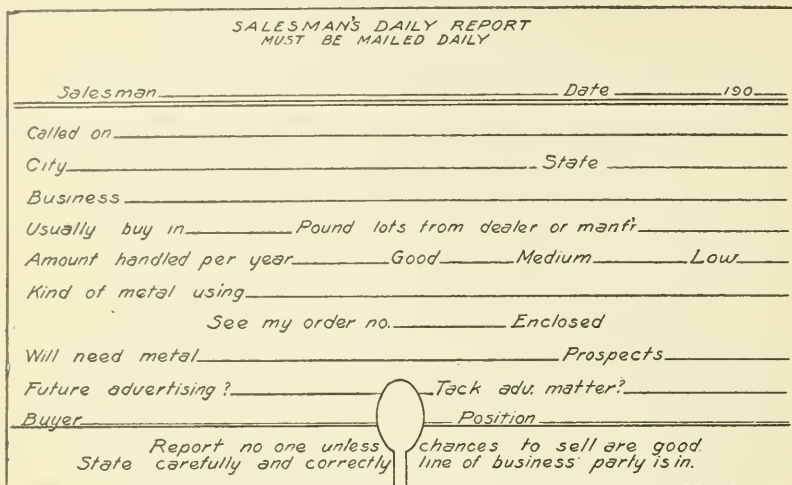 SALESMAN'S DAILY REPORT
MUST BE MAILED DAILY
Salesman Date 190
Called on
City State
Business
Usually buy in Pound lots from dealer or manf'r
Amount handled per year Good Medium Low
Kind of metal using
See my order no. Enclosed
Will need metal Prospects
Future advertising? Tack adv. matter?
Buyer Position
Report no one unless chances to sell are good.
State carefully and correctly line of business party is in.